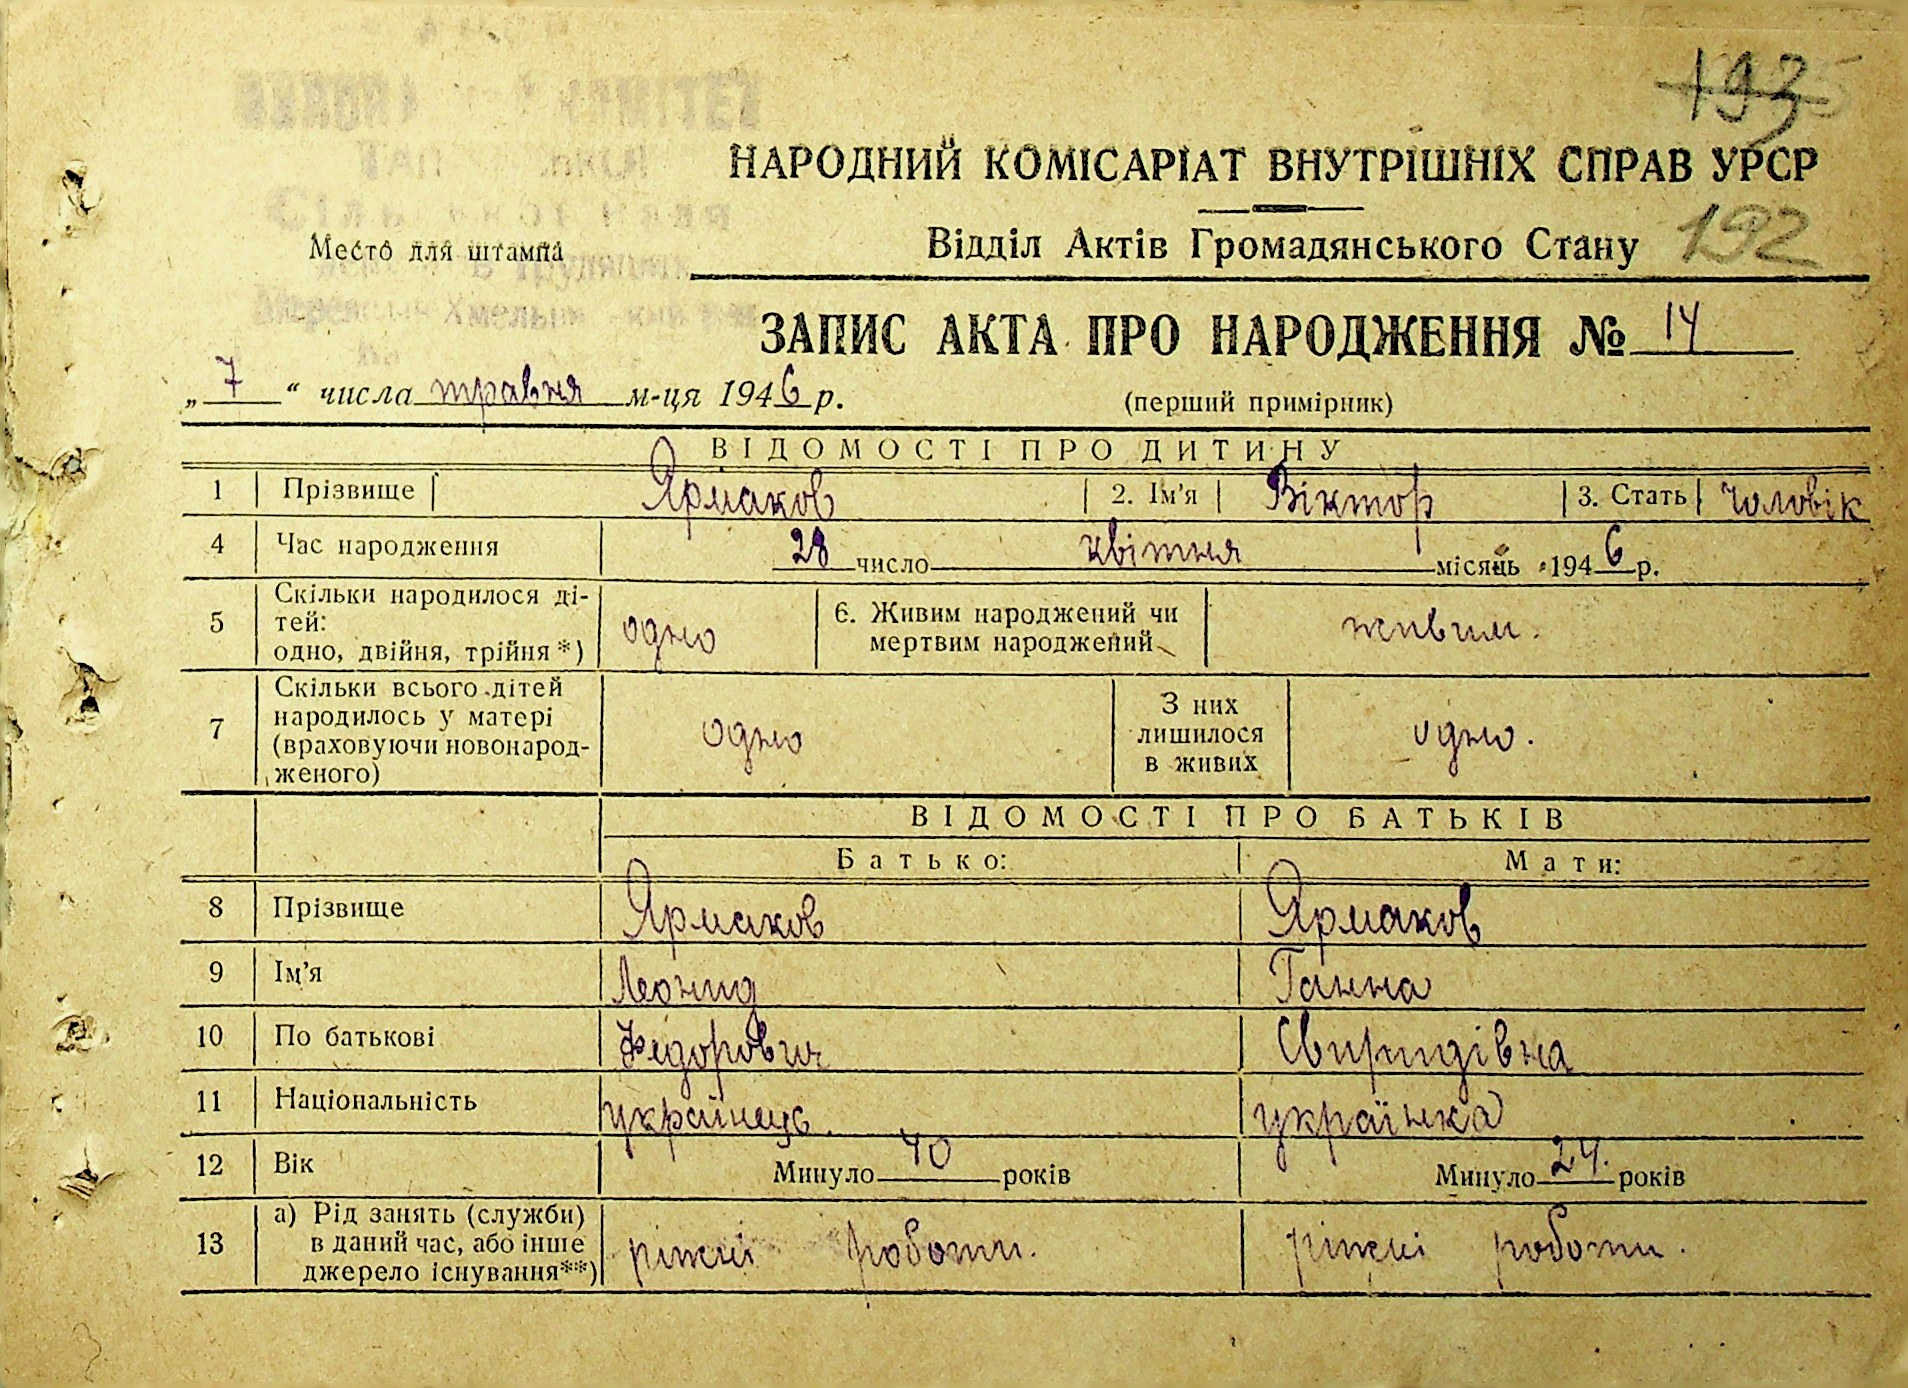 193
НАРОДНИЙ КОМІСАРІАТ ВНУТРІШНІХ СПРАВ УРСР
Место для штампа
Відділ Актів Громадянського Стану 192
ЗАПИС АКТА ПРО НАРОДЖЕННЯ № 14
„7“ числа травня м-ця 1946 р. (перший примірник)
ВІДОМОСТІ ПРО ДИТИНУ
1 Прізвище Ярмаков 2. Ім'я Віктор 3. Стать чоловік
4 Час народження 28 число квітня місяць 1946 р.
5 Скільки народилося ді-
тей:
одно, двійня, трійня *) одно 6. Живим народжений чи
мертвим народжений живим.
7 Скільки всього дітей
народилось у матері
(враховуючи новонарод-
женого) одно З них
лишилося
в живих одно.
ВІДОМОСТІ ПРО БАТЬКІВ
Батько: Мати:
8 Прізвище Ярмаков Ярмаков
9 Ім'я Леонид Ганна
10 По батькові Федорович Свиридівна
11 Національність українець. українка
12 Вік Минуло 40 років Минуло 24. років
13 а) Рід занять (служби)
в даний час, або інше
джерело існування**) ріжні роботи. ріжні роботи.